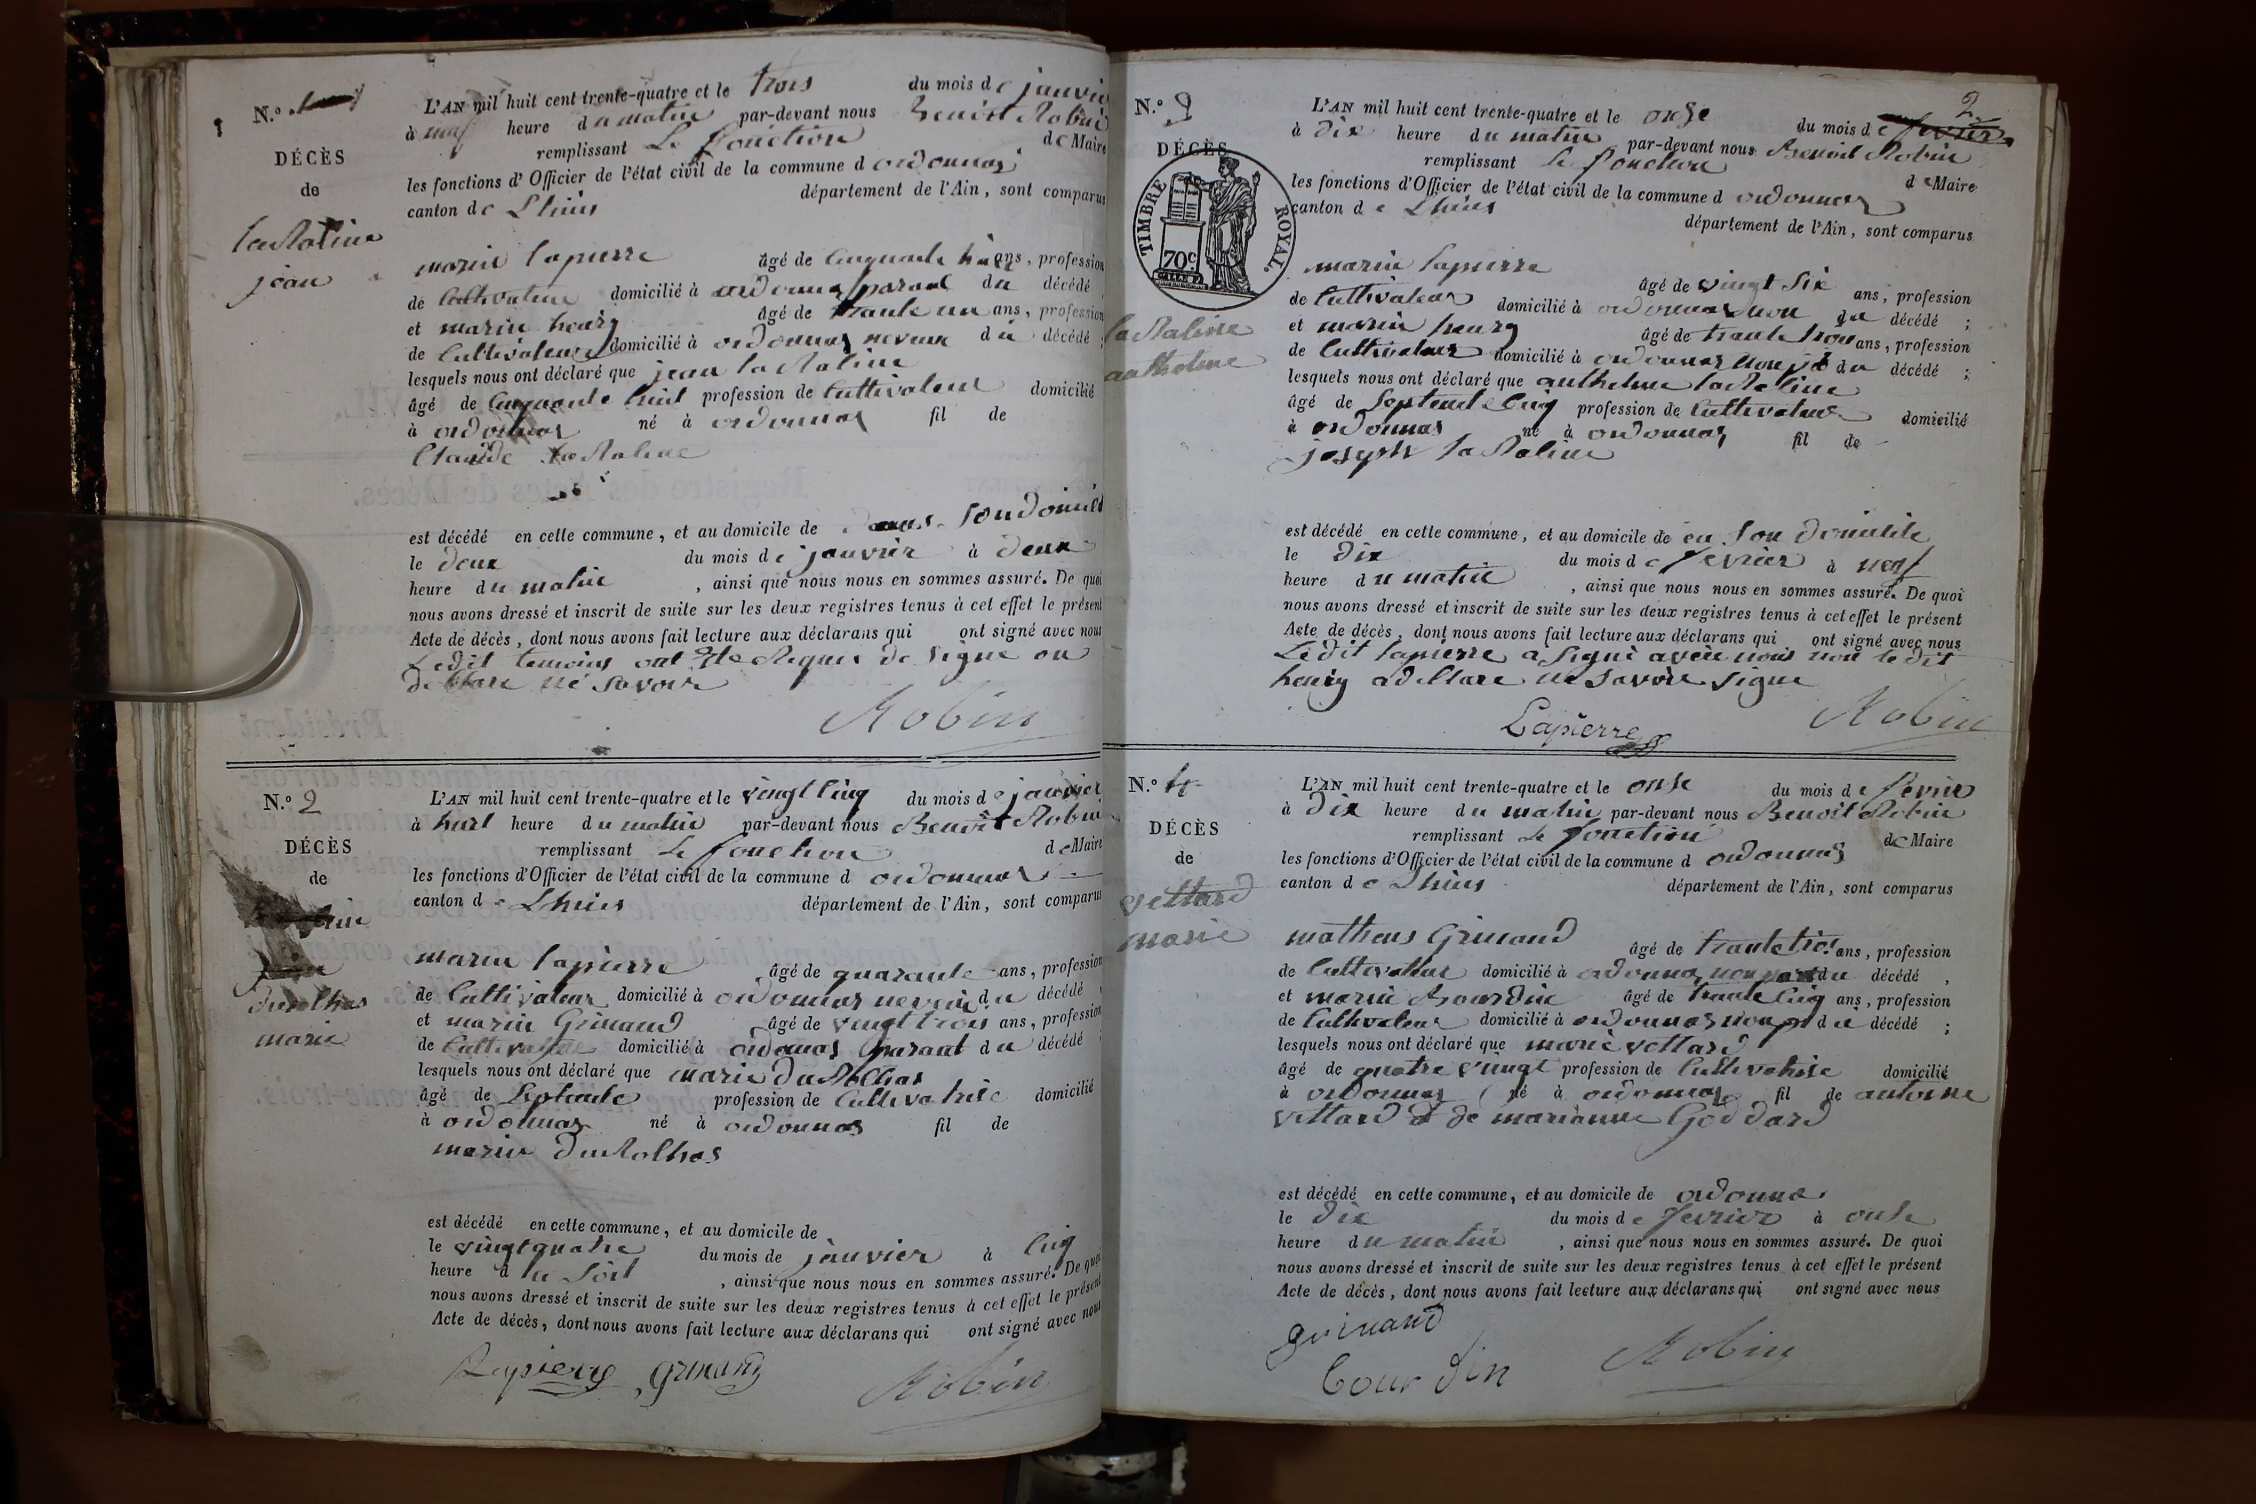 N.º 1
DÉCÈS
de
la Raline
jean
L'AN mil huit cent trente-quatre et le trois du mois de janvier
à neuf heure du matin par-devant nous Benoit Robin
remplissant Le fonction de Maire
les fonctions d'Officier de l'état civil de la commune d ordonnas
canton de Lhuis département de l'Ain, sont comparus
marin lapierre âgé de Cinquante ans, profession
de Cultivateur domicilié à ordonnas parant du décédé
et marin henry âgé de trante un ans, profession
de Cultivateur domicilié à ordonnas neveux du décédé ;
lesquels nous ont déclaré que jean la Raline
âgé de Cinquante huit profession de Cultivateur domicilié
à ordonnas né à ordonnas fil de
Claude la Raline
est décédé en cette commune, et au domicile de dans Son domicile
le deux du mois de janvier à deux
heure du matin , ainsi que nous nous en sommes assuré. De quoi
nous avons dressé et inscrit de suite sur les deux registres tenus à cet effet le présent
Acte de décès, dont nous avons fait lecture aux déclarans qui ont signé avec nous
Ledit temoins ont ete Requis de Signe on
declare ne Savoir
Robin
N.º 2
DÉCÈS
de
duRolhas
marie
L'AN mil huit cent trente-quatre et le vingt Cinq du mois de janvier
à huit heure du matin par-devant nous Benoit Robin
remplissant Le fonction de Maire
les fonctions d'Officier de l'état civil de la commune d ordonnas
canton de Lhuis département de l'Ain, sont comparus
marin lapierre âgé de quarante ans, profession
de Cultivateur domicilié à ordonnas neveux du décédé ,
et marin Grinand âgé de vingt trois ans, profession
de Cultivateur domicilié à ordonnas parant du décédé ;
lesquels nous ont déclaré que marie duRolhas
âgé de Septante profession de Cultivatrise domicilié
à ordonnas né à ordonnas fil de
marin duRolhas
est décédé en cette commune, et au domicile de
le vingt quatre du mois de janvier à Cinq
heure du Soir , ainsi que nous nous en sommes assuré. De quoi
nous avons dressé et inscrit de suite sur les deux registres tenus à cet effet le présent
Acte de décès, dont nous avons fait lecture aux déclarans qui ont signé avec nous
Lapierre Grinand
Robin
2
N.º 3
DÉCÈS
TIMBRE ROYAL.
70c
la Raline
anthelme
L'AN mil huit cent trente-quatre et le onze du mois de fevrier
à Dix heure du matin par-devant nous Benoit Robin
remplissant le fonction de Maire
les fonctions d'Officier de l'état civil de la commune d ordonnas
canton de Lhuis
département de l'Ain, sont comparus
marin lapierre âgé de vingt Six ans, profession
de Cultivateur domicilié à ordonnas non du décédé ;
et marin henry âgé de trante trois ans, profession
de Cultivateur domicilié à ordonnas non pt du décédé ;
lesquels nous ont déclaré que anthelme la Raline
âgé de Septente Cinq profession de Cultivateur domicilié
à ordonnas né à ordonnas fil de
joseph la Raline
est décédé en cette commune, et au domicile de en Son domicile
le Dix du mois de fevrier à neuf
heure du matin , ainsi que nous nous en sommes assuré. De quoi
nous avons dressé et inscrit de suite sur les deux registres tenus à cet effet le présent
Acte de décès, dont nous avons fait lecture aux déclarans qui ont signé avec nous
Le dit lapierre a Signé avec nous non le dit
henry a declare ne Savoir Signe
Lapierre Robin
N.º 4
DÉCÈS
de
vettard
marie
L'AN mil huit cent trente-quatre et le onse du mois de fevrier
à Dix heure du matin par-devant nous Benoit Robin
remplissant Le fonction de Maire
les fonctions d'Officier de l'état civil de la commune d ordonnas
canton de Lhuis département de l'Ain, sont comparus
matheus Grinand âgé de trante trois ans, profession
de Cultivateur domicilié à ordonnas non part du décédé ,
et marin Bourdin âgé de trante Cinq ans, profession
de Cultivateur domicilié à ordonnas non p du décédé ;
lesquels nous ont déclaré que marie vettard
âgé de quatre vingt profession de Cultivatrise domicilié
à ordonnas né à ordonnas fil de antoine
vettard d de marianne Goddard
est décédé en cette commune, et au domicile de ordonnas
le Dix du mois de fevrier à onse
heure du matin , ainsi que nous nous en sommes assuré. De quoi
nous avons dressé et inscrit de suite sur les deux registres tenus à cet effet le présent
Acte de décès, dont nous avons fait lecture aux déclarans qui ont signé avec nous
Grinand
Bourdin Robin